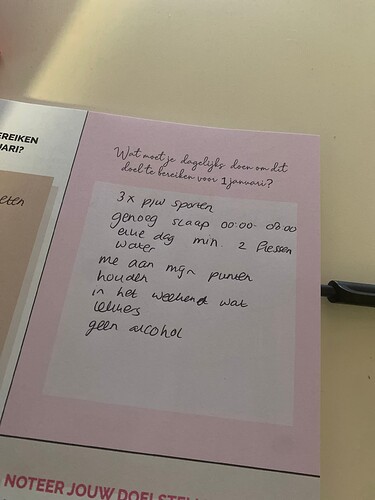 EREIKEN
UARI?
eten
Wat moet je dagelijks doen om dit
doel te bereiken voor 1 januari?
3x p/w sporten
genoeg slaap 00:00 - 08:00
elke dag min. 2 flessen
water
me aan mijn punten
houden
in het weekend wat
lekkers
geen alcohol
NOTEER JOUW DOELSTEL